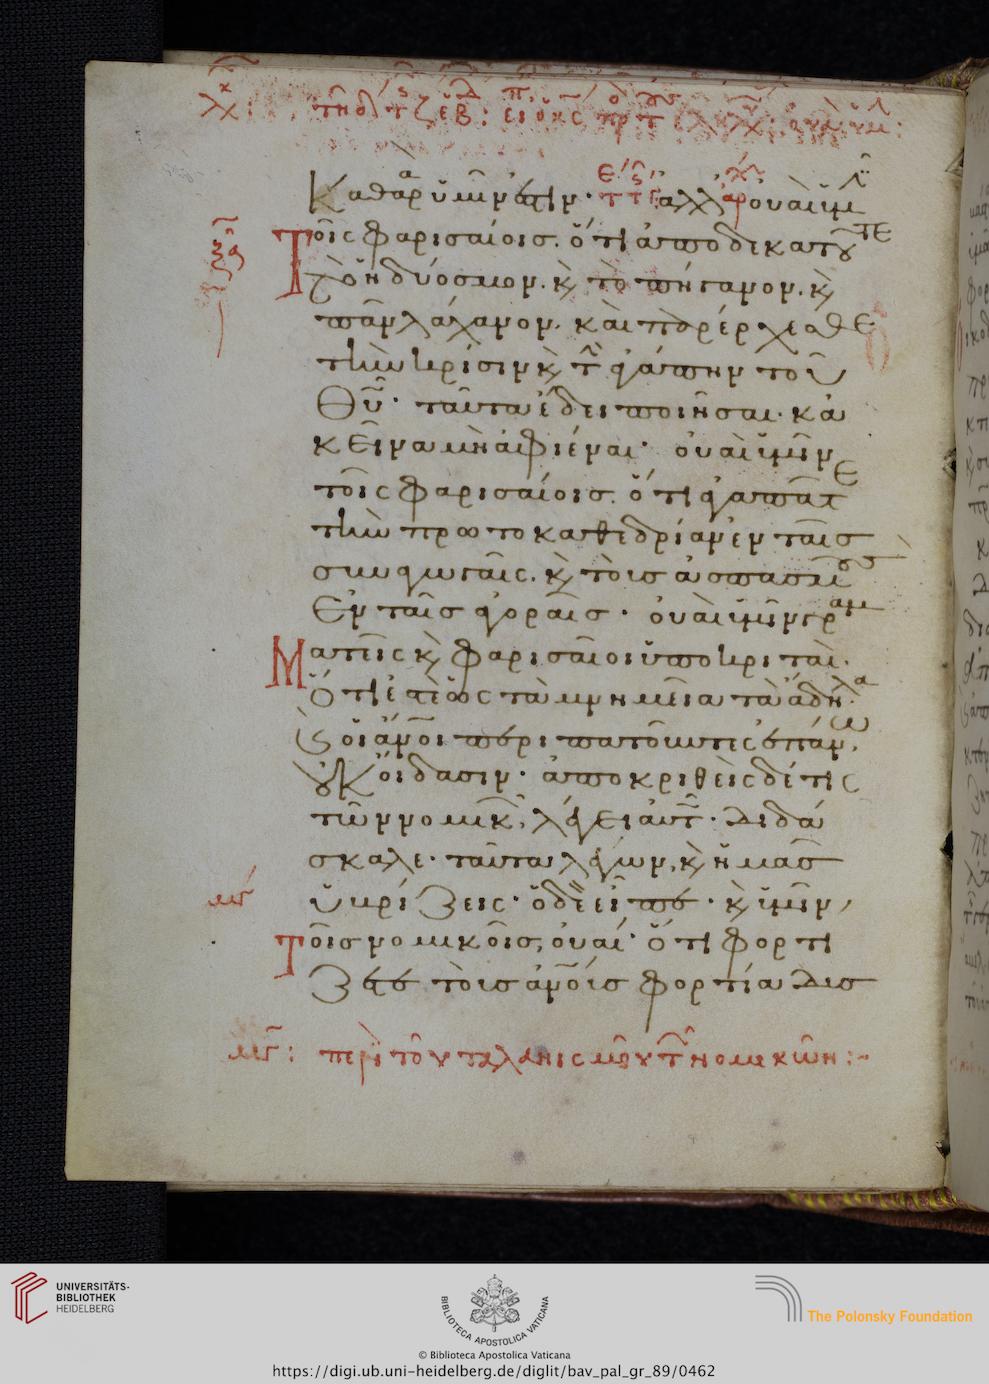 Καθαρ ὑμῖν ἐστιν· ἀλλ οὐαὶ ὑμ
Τοῖς φαρισαίοις. ὅτι ἀποδεκατοῦτε
τὸ ἡδύοσμον. κ τὸ πήγανον. κ
πᾶν λάχανον. καὶ παρέρχεσθε
τὴν κρίσιν κ τ ἀγάπην τοῦ
Θῦ· ταῦτα ἔδει ποιῆσαι· κἀ
κεῖνα μὴ ἀφιέναι· οὐαὶ ὑμῖν
τοῖς φαρισαίοις. ὅτι ἀγαπᾶτε
τὴν πρωτοκαθεδρίαν ἐν ταῖς
συναγωγαῖς. κ τοὺς ἀσπασμοὺς
Ἐν ταῖς ἀγοραῖς· οὐαὶ ὑμῖν γραμ
Ματεῖς κ φαρισαῖοι ὑποκριταί·
Ὅτι ἐστὲ ὡς τὰ μνημεῖα τὰ ἄδηλα
κ οἱ ἄνοι περιπατοῦντες ἐπάνω
οὐκ οἴδασιν· ἀποκριθεὶς δέ τις
τῶν νομικ, λέγει αὐτ· Διδά
σκαλε· ταῦτα λέγων, κ ἡμᾶς
ὑβρίζεις· ὁ δὲ εἶπε· κ ὑμῖν
Τοῖς νομικοῖς, οὐαί· ὅτι φορτί
ζετε τοὺς ἀνους φορτία δυσ
μγ: περὶ τοῦ ταλανισμοῦ τῶν νομικῶν:~
UNIVERSITÄTS-
BIBLIOTHEK
HEIDELBERG
BIBLIOTECA APOSTOLICA VATICANA
The Polonsky Foundation
© Biblioteca Apostolica Vaticana
https://digi.ub.uni-heidelberg.de/diglit/bav_pal_gr_89/0462